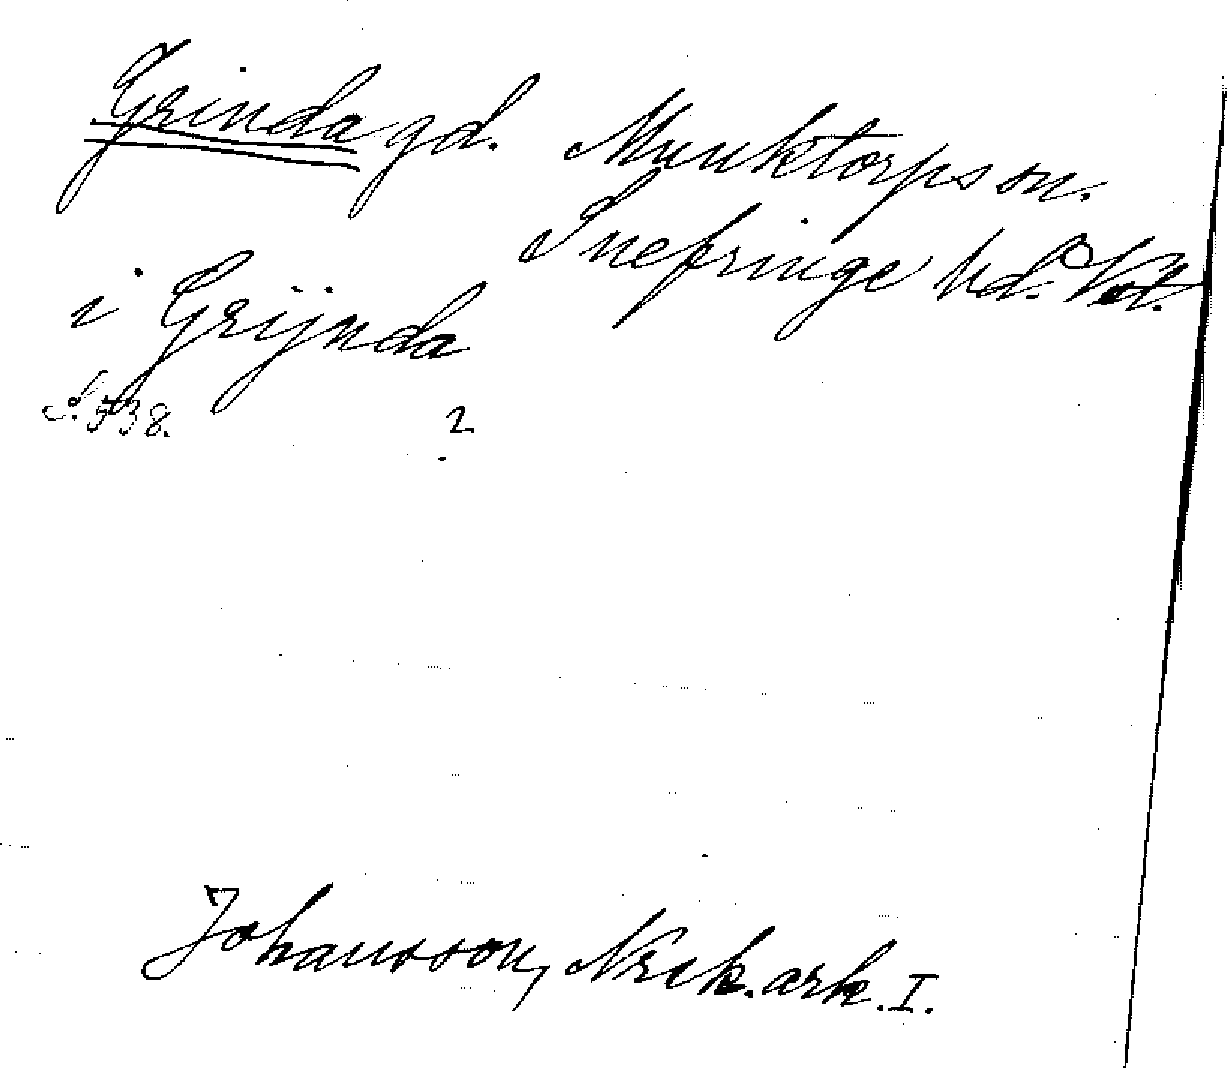 Grinda gd. Munktorps sn.
Snefringe hd. Vstl.
i Grijnda
S. 538. 2
Johansson, Norik. ark. I.